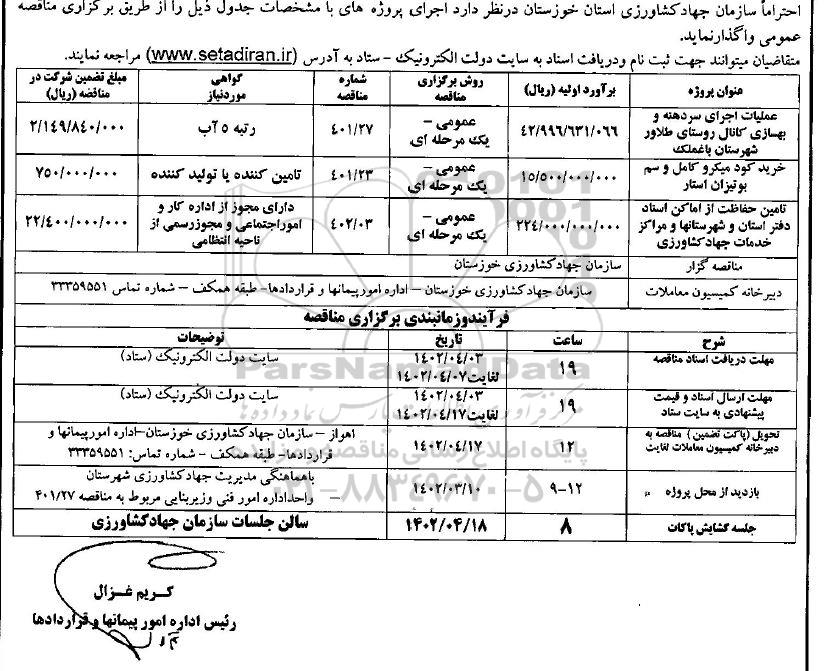 احتراماً سازمان جهادکشاورزی استان خوزستان درنظر دارد اجرای پروژه های با مشخصات جدول ذیل را از طریق برگزاری مناقصه
عمومی واگذارنماید.
متقاضیان میتوانند جهت ثبت نام ودریافت اسناد به سایت دولت الکترونیک – ستاد به آدرس (www.setadiran.ir) مراجعه نمایند.
عنوان پروژه
برآورد اولیه (ریال)
روش برگزاری مناقصه
شماره مناقصه
گواهی موردنیاز
مبلغ تضمین شرکت در مناقصه (ریال)
عملیات اجرای سردهنه و
بهسازی کانال روستای طلاور
شهرستان باغملک
۴۲/۹۹۶/۶۳۱/۰۶۶
عمومی –
یک مرحله ای
۴۰۱/۲۷
رتبه ۵ آب
۲/۱۴۹/۸۴۰/۰۰۰
خرید کود میکرو کامل و سم
بوتیزان استار
۱۵/۵۰۰/۰۰۰/۰۰۰
عمومی –
یک مرحله ای
۴۰۱/۲۳
تامین کننده یا تولید کننده
۷۵۰/۰۰۰/۰۰۰
تامین حفاظت از اماکن اسناد
دفتر استان و شهرستانها و مراکز
خدمات جهادکشاورزی
۲۲۴/۰۰۰/۰۰۰/۰۰۰
عمومی –
یک مرحله ای
۴۰۲/۰۳
دارای مجوز از اداره کار و
اموراجتماعی و مجوزرسمی از
ناحیه انتظامی
۲۲/۴۰۰/۰۰۰/۰۰۰
مناقصه گزار
سازمان جهادکشاورزی خوزستان
دبیرخانه کمیسیون معاملات
سازمان جهادکشاورزی خوزستان – اداره امورپیمانها و قراردادها- طبقه همکف – شماره تماس ۳۳۳۵۹۵۵۱
فرآیندوزمانبندی برگزاری مناقصه
شرح
ساعت
تاریخ
توضیحات
مهلت دریافت اسناد مناقصه
۱۹
۱۴۰۲/۰۴/۰۳
لغایت۱۴۰۲/۰۴/۰۷
سایت دولت الکترونیک (ستاد)
مهلت ارسال اسناد و قیمت
پیشنهادی به سایت ستاد
۱۹
۱۴۰۲/۰۴/۰۳
لغایت۱۴۰۲/۰۴/۱۷
سایت دولت الکترونیک (ستاد)
تحویل (پاکت تضمین ) مناقصه به
دبیرخانه کمیسیون معاملات لغایت
۱۲
۱۴۰۲/۰۴/۱۷
اهواز – سازمان جهادکشاورزی خوزستان–اداره امورپیمانها و
قراردادها- طبقه همکف - شماره تماس: ۳۳۳۵۹۵۵۱
بازدید از محل پروژه
۹-۱۲
۱۴۰۲/۰۳/۱۰
باهماهنگی مدیریت جهادکشاورزی شهرستان
واحداداره امور فنی وزیربنایی مربوط به مناقصه ۴۰۱/۲۷
جلسه گشایش پاکات
۸
۱۴۰۲/۰۴/۱۸
سالن جلسات سازمان جهادکشاورزی
کریم غزال
رئیس اداره امور پیمانها و قراردادها
ParsNamadData
پایگاه اطلاع رسانی مناقصه و مزایده
۰۲۱-۸۸۳۴۹۶۷۰-۵